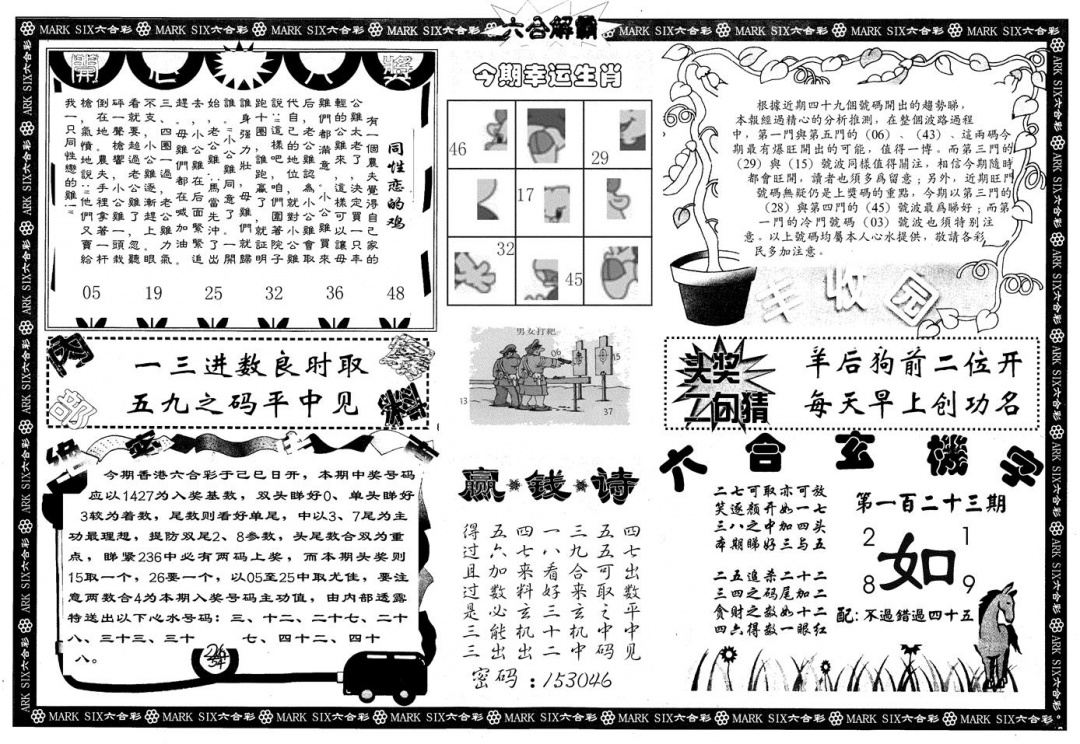 六合解霸
MARK SIX六合彩
開
獎
同性恋的鸡
有一個農夫覺得自己家的
公雞太老了，決定買一只年
輕的公雞來，這樣可以讓母
雞們都滿意。小公雞買來
后，老公雞認為小公雞會取
代自己的地位，就對小公雞
説：這樣吧，咱們圍著院子
跑十圈，誰跑贏了，就証明
誰身強力壯，母雞們就歸
誰。小公雞同意了。一開
始，老公雞一馬當先冲了出
去，小公雞在后面緊緊追
趕。母雞們都在喊加油
三、四圈過，老公雞力氣
不支，小公雞逐漸趕上眼
看就要越過老公雞了，只聽
砰一聲槍響，小公雞一頭栽
倒在地。農夫手裡拿著一杆
槍，氣憤地説：他們又賣給
我一只同性戀的雞！
05 19 25 32 36 48
今期幸运生肖
46
29
17
32
45
根據近期四十九個號碼開出的趨勢睇，
本報經過精心的分析推測，在整個波路過程
中，第一門與第五門的（06）、（43）、這兩碼今
期最有爆旺開出的可能，值得一博。而第三門的
（29）與（15）號波同樣值得關注，相信今期隨時
都會旺開，讀者也須多爲留意；另外，近期旺門
號碼無疑仍是上獎碼的重點，今期以第三門的
（28）與第四門的（45）號波最爲睇好；而第
一門的冷門號碼（03）號波也須特別注
意。以上號碼均屬本人心水提供，敬請各彩
民多加注意。
丰收园
内部
一三进数良时取
五九之码平中见
男女打靶
06
15
13
37
头奖
二句猜
羊后狗前二位开
每天早上创功名
绝密
今期香港六合彩于己巳日开，本期中奖号码
应以1427为入奖基数，双头睇好0、单头睇好
3较为着数，尾数则看好单尾，中以3、7尾为主
功最理想，提防双尾2、8参数，头尾数合双为重
点，睇紧236中必有两码上奖，而本期头奖则
15取一个，26要一个，以05至25中取尤佳，要注
意两数合4为本期入奖号码主功值，由内部透露
特送出以下心水号码：三、十二、二十七、二十
八、三十三、三十 七、四十二、四十
八。
赢钱诗
四七出数平中见
五五可取之中码
三九合来玄机中
一八看好三十二
四七来料玄机出
五六加数必能出
得过且过是三三
密码：153046
六合玄機字
二七可取亦可放
笑逐颜开如一七
三八之中加四头
本期睇好三与五
二五追杀二十二
三四之码尾加二
贪财之数如十二
四六得数一眼红
第一百二十三期
2 1
如
8 9
配：不過錯過四十五